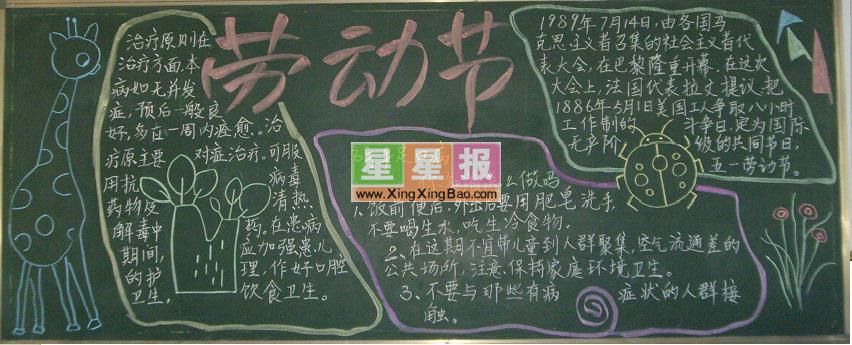 劳动节
治疗原则在
治疗方面,本
病如无并发
症,预后一般良
好,多在一周内痊愈。治
疗原主要 对症治疗。可服
用抗 病毒
药物及 清热
解毒中 药,在患病
期间, 应加强患儿
的护 理,作好口腔
卫生, 饮食卫生。
星星报
www.XingXingBao.com
么做吗
1、饭前便后、外出后要用肥皂洗手
不要喝生水、吃生冷食物。
2、在这期不宜带儿童到人群聚集,空气流通差的
公共场所,注意保持家庭环境卫生。
3、不要与那些有病 症状的人群接
触。
1989年7月14日,由各国马
克思主义者召集的社会主义者代
表大会,在巴黎隆重开幕,在这次
大会上,法国代表拉文提议:把
1886年5月1日美国工人争取八小时
工作制的 斗争日,定为国际
无产阶 级的共同节日。
五一劳动节。